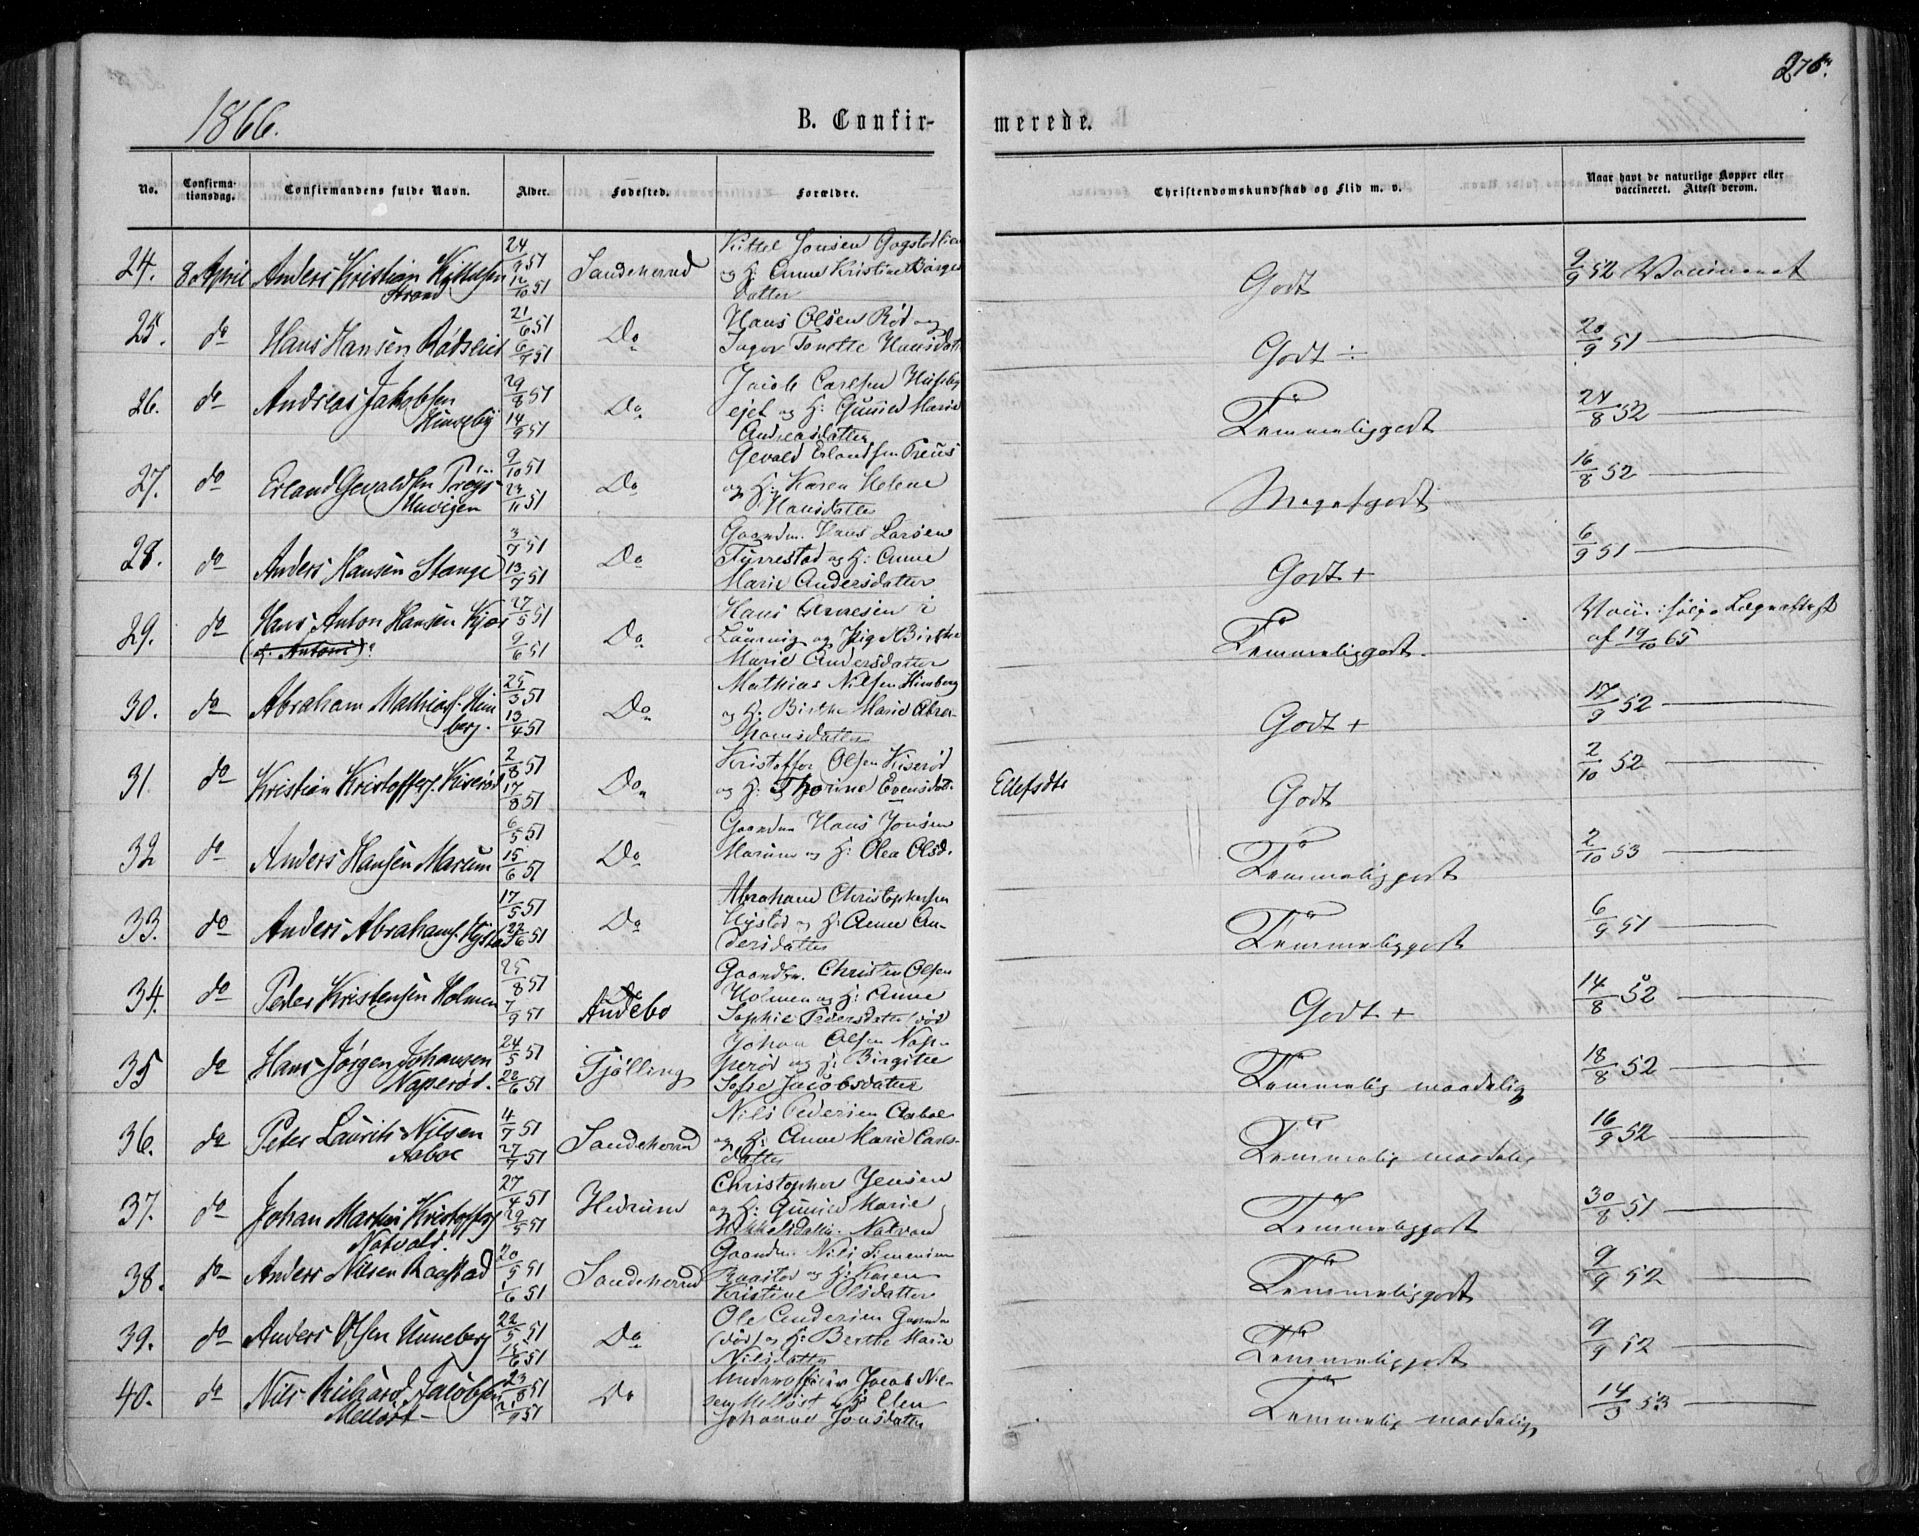 1866.
B. Confir-
merede.
276.
No.
Confirma-
tionsdag.
Confirmandens fulde Navn.
Alder.
Fødested.
Forældre.
Christendomskundskab og Flid m. v.
Naar havt de naturlige Kopper eller
vaccineret. Attest derom.
24. 8 April Anders Kristian Kittelsen
Strand
24/9 51
12/10 51
Sandeherred
Kittel Jonsen Gogstadlien
og H: Anne Kristine Børges
datter
Godt
9/9 52 Vaccineret
25. do Hans Hansen Rødseie
21/6 51
6/7 51
Do
Hans Olsen Rød og
Inger Tonette Hansdatt
Godt ÷
20/9 51
26. do Andreas Jakobsen
Huseby
29/8 51
14/9 51
Do
Jacob Carlsen Huseby
ejet og H: Gunild Marie
Andreasdatter
Temmeliggodt
24/8 52
27. do Erland Gevaldsen Preÿs
Huvigen
9/10 51
23/11 51
Do
Gevald Erlandsen Preus
og H: Karen Helene
Hansdatter
Megetgodt
16/8 52
28. do Anders Hansen Stange
3/7 51
13/7 51
Do
Gaardm. Hans Larsen
Furrestad og H: Anne
Marie Andersdatter
Godt +
6/9 51
29. do Hans Anton Hansen Kjær
27/5 51
9/6 51
Do
Hans Arnesen i
Laurvig og Pige Birthe
Marie Andersdatter
Temmeliggodt.
Vacc. ifølge Lægeattest
af 19/10 65
30. do Abraham Mathias. Him
berg.
25/3 51
13/4 51
Do
Mathias Nilsen Himberg
og H: Birthe Marie Abra-
hamsdatter
Godt +
17/9 52
31. do Kristian Kristoffers. Kiserød
2/8 51
17/8 51
Do
Kristoffer Olsen Kiserød
og H: Thorine Evensdat.
Ellefsdtr
Godt
2/10 52
32 do Anders Hansen Marum
6/5 51
15/6 51
Do
Gaardm Hans Jonsen
Marum og H: Olea Olsd.
Temmeliggodt
2/10 53
33. do Anders Abrahams. Hystad
17/5 51
22/6 51
Do
Abraham Christophersen
Hystad og H: Anne An-
dersdatter
Temmeliggodt
6/9 51
34. do Peder Kristensen Holmen
25/8 51
7/9 51
Andebo
Gaardbr. Christen Olsen
Holmen og H: Anne
Sophie Pedersdatter (død
Godt +
14/8 52
35 do Hans Jørgen Johansen
Napperød.
24/5 51
22/6 51
Tjølling
Johan Olsen Nap-
perød og H: Birgitte
Sofie Jacobsdatter
Temmelig maadelig
18/8 52
36. do Peter Laurits Nilsen
Aaboe
4/7 51
27/7 51
Sandeherred
Nils Pedersen Aaboe
og H: Anne Marie Carls-
datter
Temmelig maadelig
16/9 52
37. do Johan Martin Kristoffers
Natvall.
27/4 51
29/5 51
Hedrum
Christopher Jensen
og H: Gunild Marie
Mikkelsdatter. Natvall
Temmeliggodt
30/8 51
38. do Anders Nilsen Raastad
20/5 51
1/6 51
Sandeherred
Gaardm. Nils Simensen
Raastad og H: Karen
Kristine Olsdatter
Temmeliggodt
9/9 52
39. do Anders Olsen Unneberg
22/5 51
15/6 51
Do
Ole Andersen Gaardm
(død) og H: Berthe Marie
Nilsdatter
Temmeliggodt
9/9 52
40. do Nils Richard Jacobsen
Melløst
23/8 51
21/9 51
Do
Underofficier Jacob Nil-
sen Melløst og H: Elen
Johanne Jonsdatter
Temmelig maadelig
14/5 53